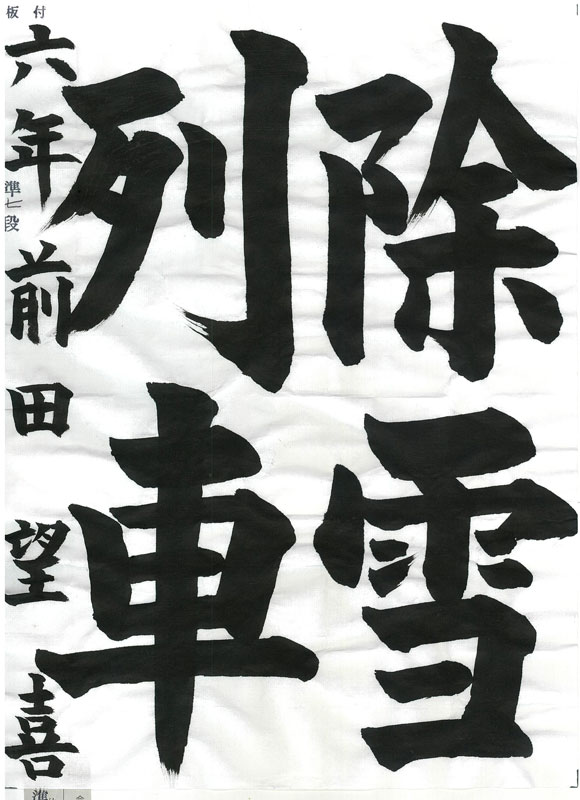 除雪
列車
六年 前田望喜
準七段
板付
準